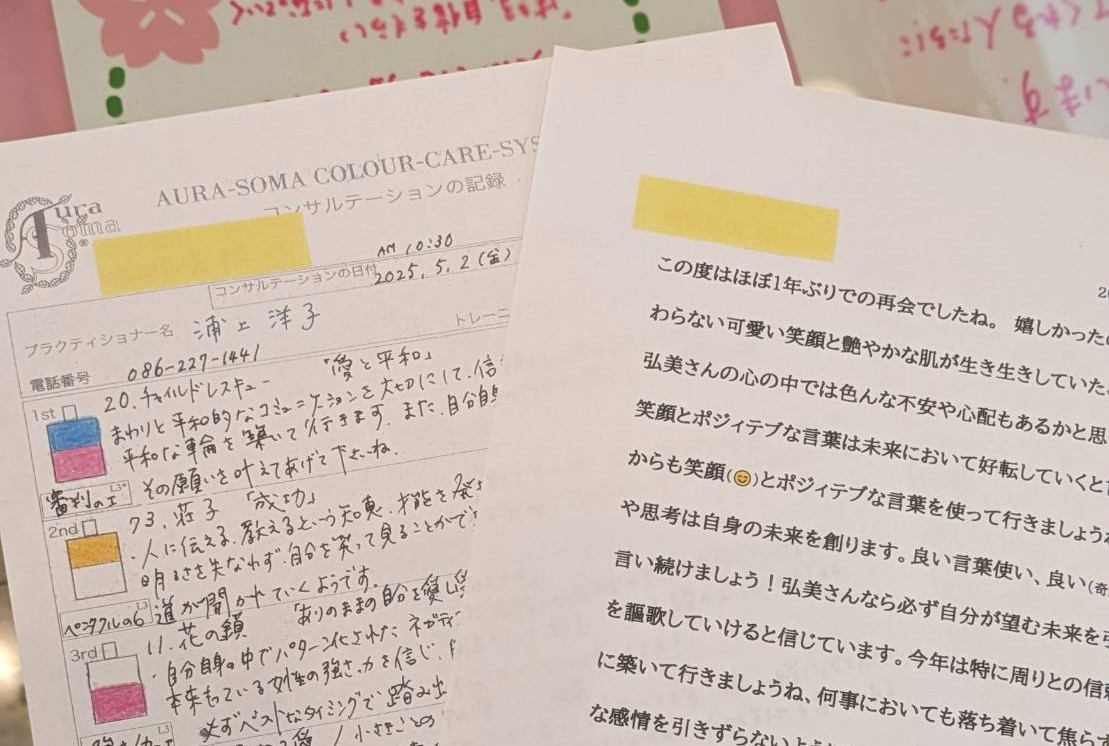 AURA-SOMA COLOUR-CARE-SYS
コンサルテーションの記録
Aura
Soma
AM 10:30
コンサルテーションの日付 2025. 5. 2 (金)
プラクティショナー名 浦上 洋子
トレーニ
電話番号 086-227-1441
1st
20. チャイルドレスキュー 「愛と平和」
まわりと平和的なコミュニケーションを大切にして、信
平和な輪を築いて行きます。また、自分自
その願いを叶えてあげて下さいね。
審判の
2nd
73. 荘子 「成功」
・人に伝える、教えるという知恵、才能を
明るさを失なわず、自分を笑って見ることができ
道が開かれていくようです。
ペンタクルの6
3rd
11. 花の鎖 「ありのままの自分を愛し
・自分自身の中でパターン化されたネガティ
本来もっている女性の強さ、力を信じ、
必ずベストなタイミングで踏み出
小さなことの
この度はほぼ1年ぶりでの再会でしたね。 嬉しかった
わらない可愛い笑顔と艶やかな肌が生き生きしていた
弘美さんの心の中では色んな不安や心配もあるかと思
笑顔とポジィテブな言葉は未来において好転していくと
からも笑顔(😊)とポジィテブな言葉を使って行きましょう
や思考は自身の未来を創ります。良い言葉使い、良い(奇
言い続けましょう！弘美さんなら必ず自分が望む未来を
を謳歌していけると信じています。今年は特に周りとの信
に築いて行きましょうね、何事においても落ち着いて焦らず
な感情を引きずらないように